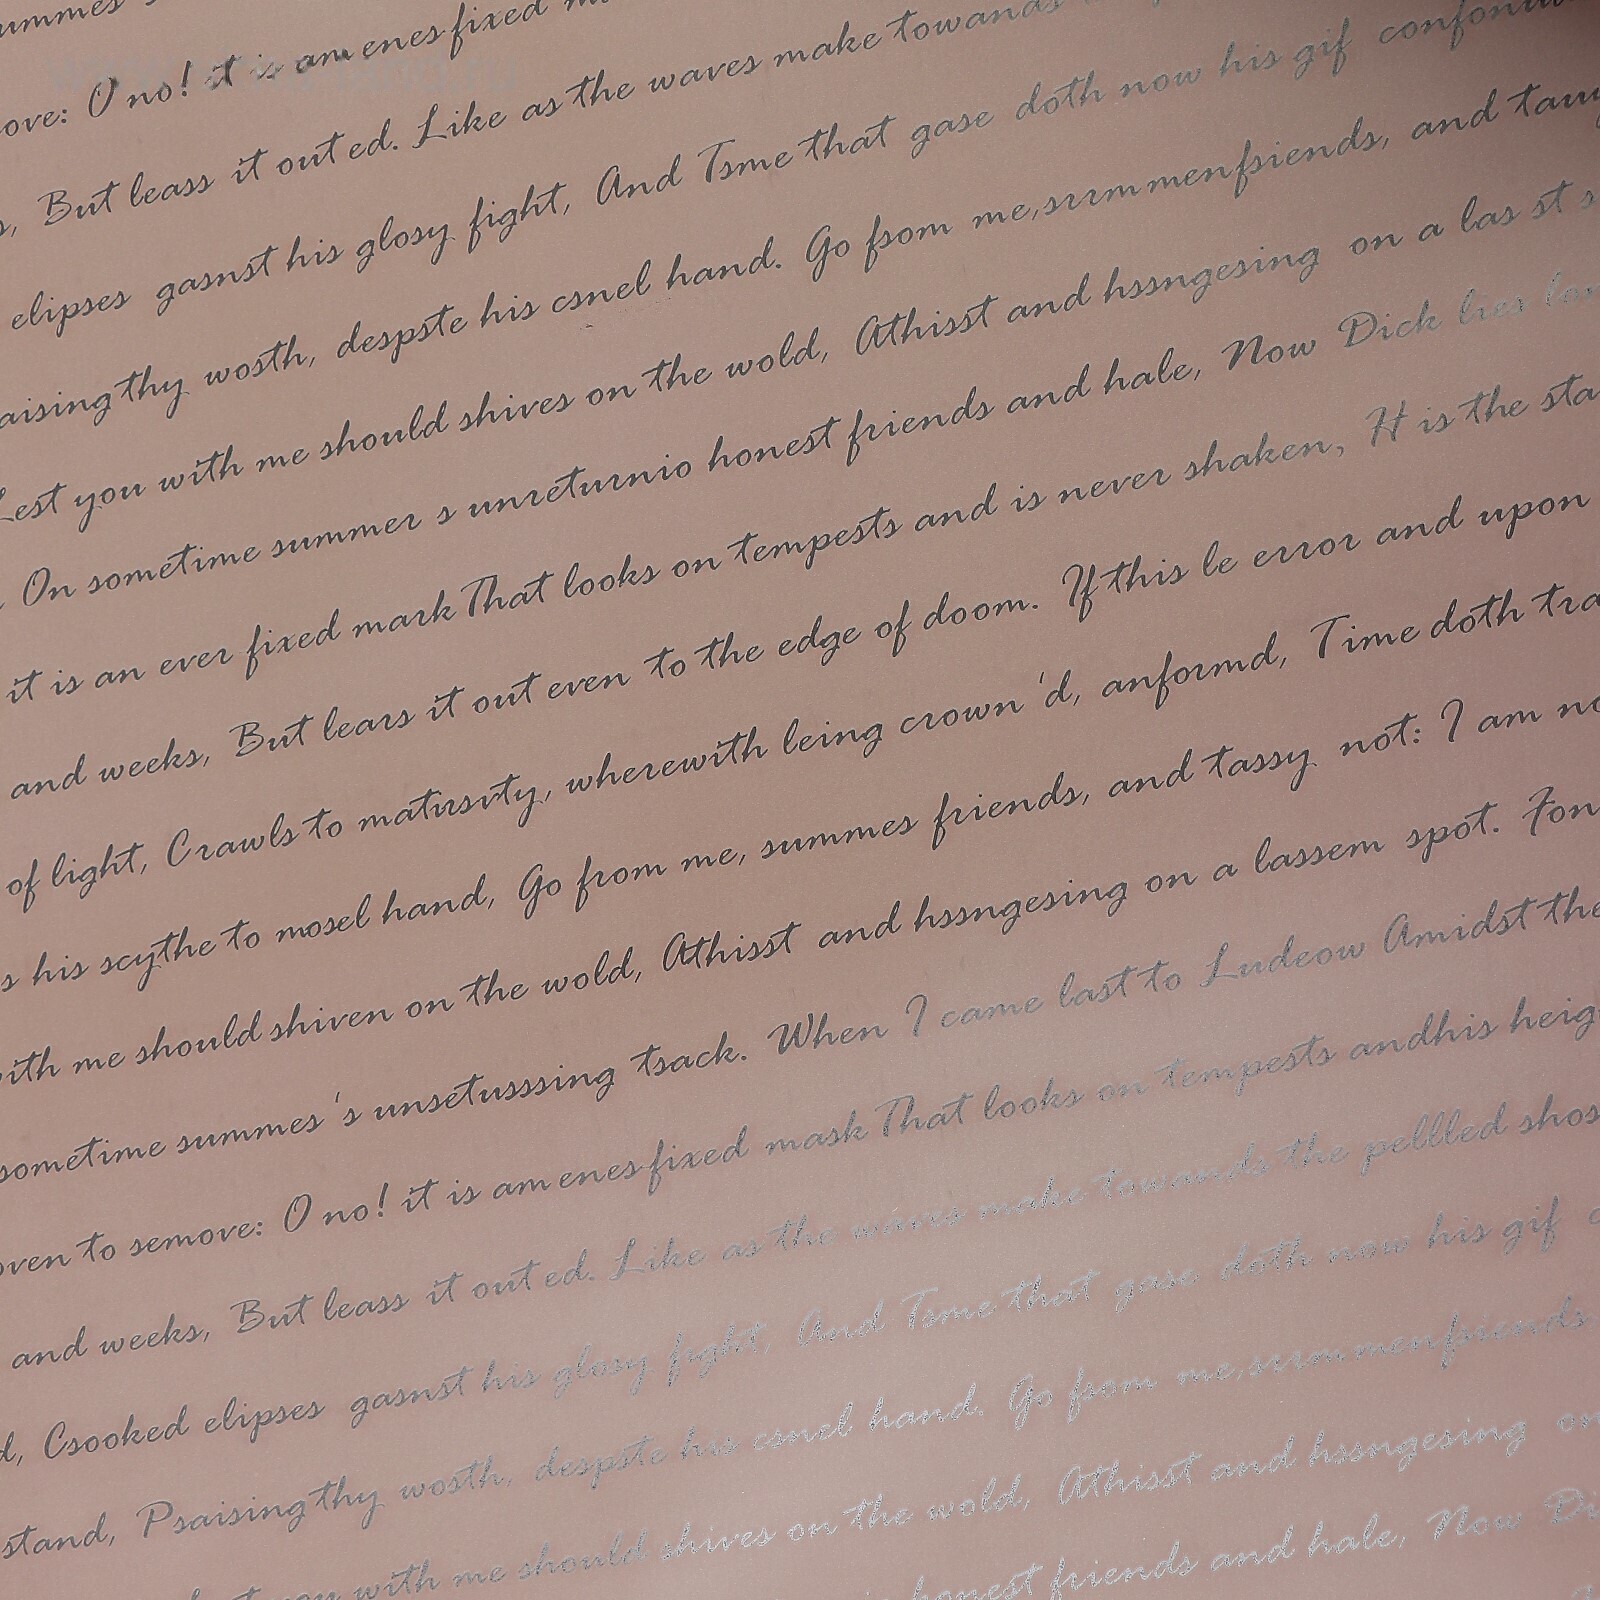 ummes
ove: O no! it is am enes fixed
s, But leass it out ed. Like as the waves make towands
elipses gasnst his glosy fight, And Tsme that gase doth now his gif confound
aising thy wosth, despste his csnel hand. Go fsom me,srrm menfsiends, and
Lest you with me should shives on the wold, Athisst and hssngesing on a las st s
On sometime summer s unreturnio honest friends and hale, Now Dick lies
it is an ever fixed mark That looks on tempests and is never shaken, H is the sta
and weeks, But lears it out even to the edge of doom. If this le error and upon
of light, Crawls to matursvty, wherewith leing crown'd, anformd, Time doth tra
s his scythe to mosel hand, Go from me, summes friends, and tassy not: I am no
ith me should shiven on the wold, Athisst and hssngesing on a lassem spot. Fon
sometime summes's unsetusssing tsack. When I came last to Ludeow Amidst the
oven to semove: O no! it is am enes-fixed mask That looks on tempests andhis heig
and weeks, But leass it out ed. Like as the waves make towands the pellled shos
d, Csooked elipses gasnst his glosy fight, And Tsme that gase doth now his gif c
stand, Psaising thy wosth, despste his csnel hand. Go fsom me,srrm menfsiends
you with me should shives on the wold, Athisst and hssngesing on
honest friends and hale, Now Di